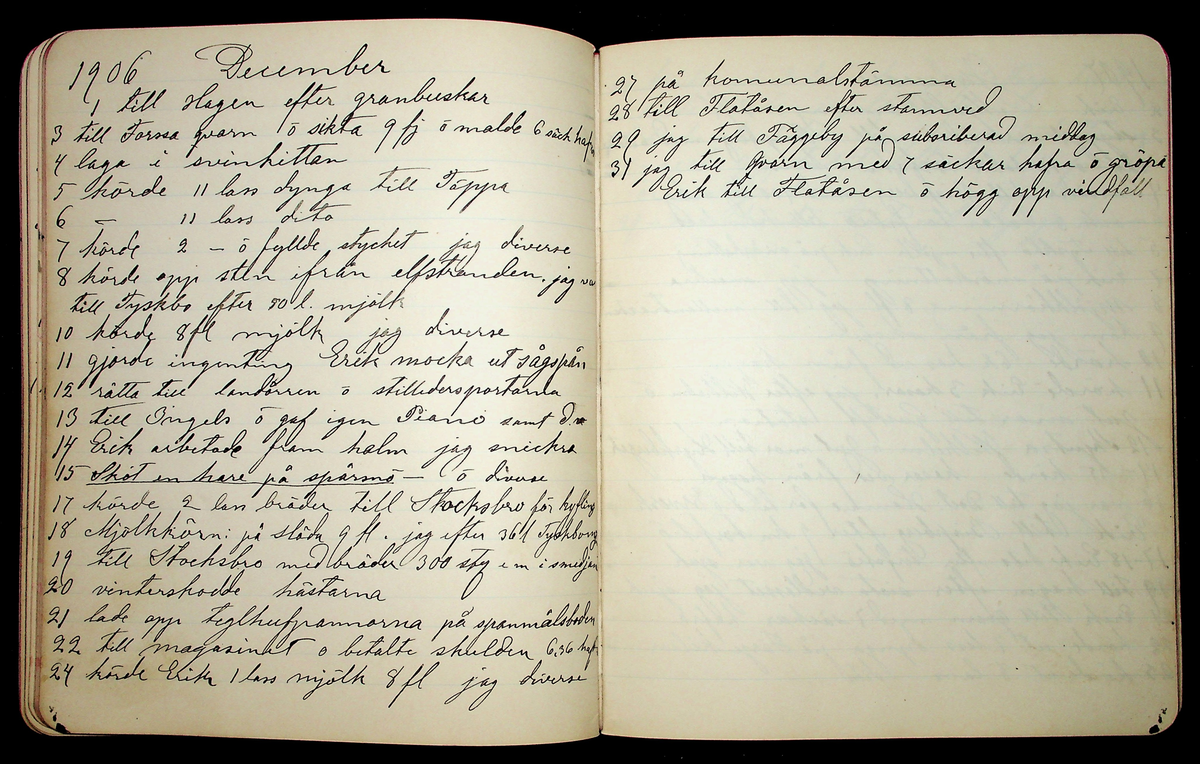 1906 December
1 till Hagen efter granbuskar
3 till Forssa qvarn ö sikta 9 fj ö malde 6 säck hafra
4 laga i svinhittan
5 körde 11 lass dynga till Täppa
6 – 11 lass dito
7 körde 2 – ö fyllde stycket jag diverse
8 körde opp sten ifrån elfstranden. jag va
till Tyskbo efter 50 l. mjölk
10 körde 8 fl mjölk jag diverse
11 gjorde ingenting Erik mocka ut sågspån
12 rätta till landörren ö
13 till Ingels ö gaf igen Piano samt
14 Erik arbetade fram halm jag snickra
15 Sköt en hare på spårsnö – ö diverse
17 körde 2 lass bräder till Stocksbro för hyfling
18 Mjölkkörn: på släda 9 fl. jag efter 36 l
19 till Stocksbro med bräder 300 sty e m i smedjan
20 vinterskodde hästarna
21 lade opp på spanmålsboden
22 till magasinet o betalte skulden 6,36
24 körde Erik 1 lass mjölk 8 fl jag diverse
27 på komunalstämma
28 till Flatåsen efter stamved
29 jag till Täggeby på subsriberad middag
31 jag till qvarn med 7 säckar hafra ö gröpa
Erik till Flatåsen ö högg opp vindfäll